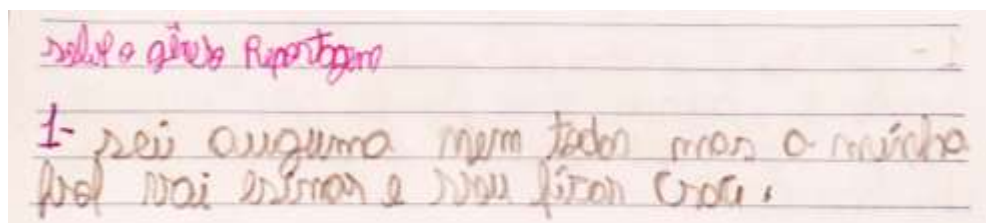 sobre o gênero Reportagem
1- sei auguma nem todas mas a minha
prof vai esinar e vou ficar crau.